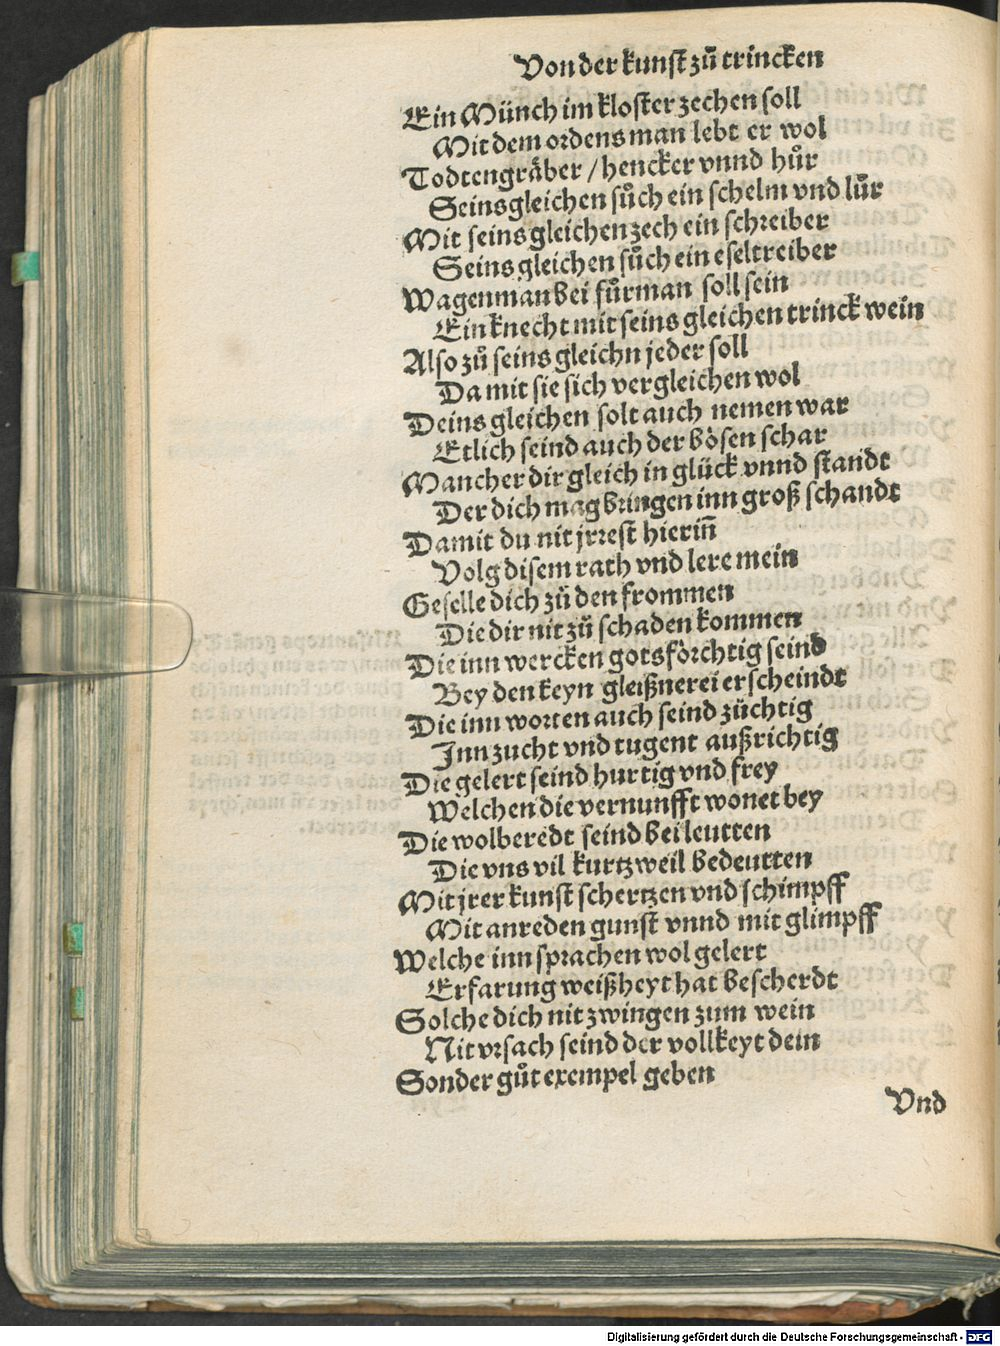 Von der kunst zů trincken
Ein Münch im kloster zechen soll
Mit dem ordensman lebt er wol
Todtengräber / hencker vnnd hůr
Seinsgleichen sůch ein schelm vnd lůr
Mit seins gleichen zech ein schreiber
Seins gleichen sůch ein eseltreiber
Wagenman bei fůrman soll sein
Ein knecht mit seins gleichen trinck wein
Also zů seins gleichn jeder soll
Da mit sie sich vergleichen wol
Deins gleichen solt auch nemen war
Etlich seind auch der bösen schar
Mancher dir gleich in glück vnnd standt
Der dich mag bringen inn groß schandt
Damit du nit jrrest hierin̄
Volg disem rath vnd lere mein
Geselle dich zů den frommen
Die dir nit zů schaden kommen
Die inn wercken gotsförchtig seind
Bey den keyn gleißnerei erscheindt
Die inn worten auch seind züchtig
Inn zucht vnd tugent außrichtig
Die gelert seind hurtig vnd frey
Welchen die vernunfft wonet bey
Die wolberedt seind bei leutten
Die vns vil kurtzweil bedeutten
Mit jrer kunst schertzen vnd schimpff
Mit anreden gunst vnnd mit glimpff
Welche inn sprachen wol gelert
Erfarung weißheyt hat bescherdt
Solche dich nit zwingen zum wein
Nit vrsach seind der vollkeyt dein
Sonder gůt exempel geben
Vnd
Digitalisierung gefördert durch die Deutsche Forschungsgemeinschaft - DFG